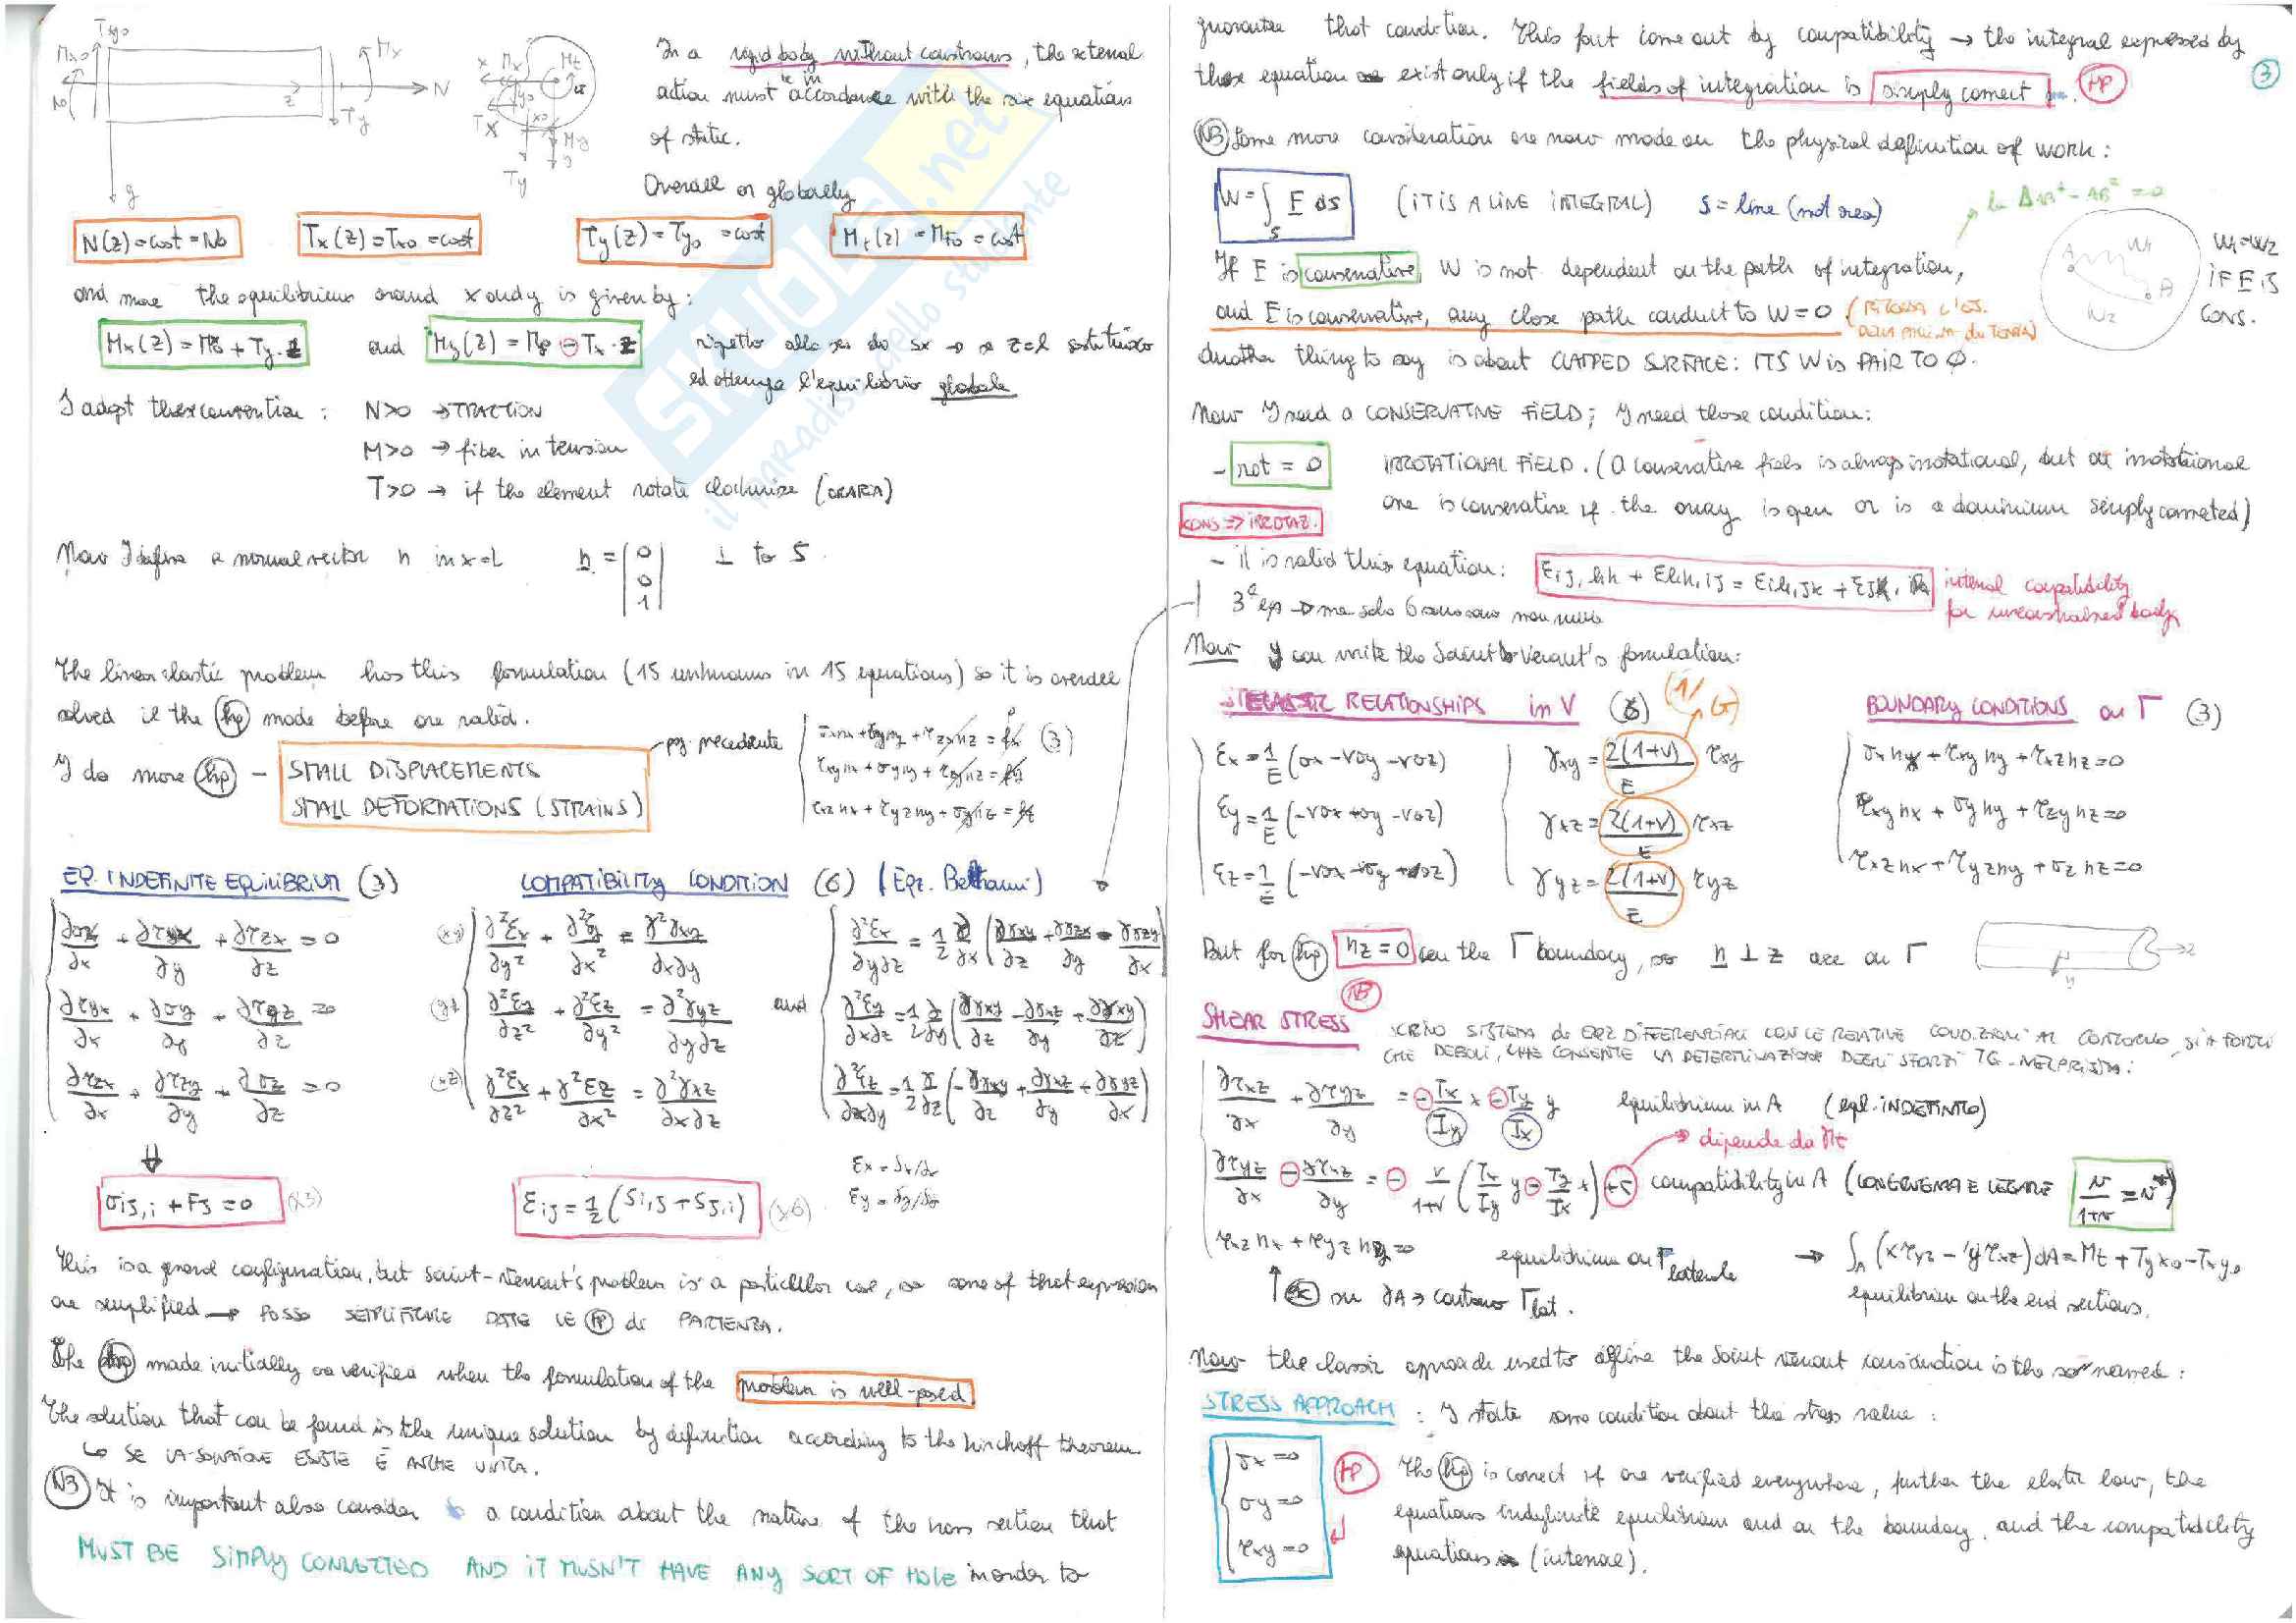 Tyo
Mxo
No
Mx
N
z
Ty
y
x Mx
Mt
Tx
My
Ty
In a rigid body without constrains, the external
action must be in accordance with the six equations
of static.
Overall or globally
N(z)=cost=No
Tx(z)=Txo=cost
Ty(z)=Tyo=cost
Mt(z)=Mto=cost
and more the equilibrium around x and y is given by:
Mx(z)=Mo+Ty·z
and
My(z)=Mo-Tx·z
rispetto alla sez do sx → z=l sostituisco
ed ottengo l'equilibrio globale
I adopt these convention: N>0 → TRACTION
M>0 → fiber in tension
T>0 → if the element rotate clockwise (ORARIA)
Now I define a normal vector n in x=L n = (0 0 1) ⊥ to S.
The linear elastic problem has this formulation (15 unknowns in 15 equations) so it is
solved if the hp made before are valid.
I do more hp - SMALL DISPLACEMENTS
SMALL DEFORMATIONS (STRAINS)
pg. precedente
(3)
EQ. INDEFINITE EQUILIBRIUM (3)
∂σx/∂x + ∂τyx/∂y + ∂τzx/∂z = 0
∂τyx/∂x + ∂σy/∂y + ∂τyz/∂z = 0
∂τzx/∂x + ∂τzy/∂y + ∂σz/∂z = 0
σij,i + Fj = 0 (x3)
COMPATIBILITY CONDITION (6) (Eqz. Beltrami)
(xy) ∂²εx/∂y² + ∂²εy/∂x² = ∂²γxy/∂x∂y
(yz) ∂²εy/∂z² + ∂²εz/∂y² = ∂²γyz/∂y∂z
(xz) ∂²εx/∂z² + ∂²εz/∂x² = ∂²γxz/∂x∂z
and
∂²εx/∂y∂z = 1/2 ∂/∂x (∂γxy/∂z + ∂γzx/∂y - ∂γzy/∂x)
∂²εy/∂x∂z = 1/2 ∂/∂y
∂²εz/∂x∂y = 1/2 ∂/∂z (-∂γxy/∂z + ∂γxz/∂y + ∂γyz/∂x)
εij = 1/2 (Si,j + Sj,i) (x6)
This is a general configuration, but Saint-Venant's problem is a particular case, so some of that expression
are semplified → POSSO SEMPLIFICARE DATE LE HP di PARTENZA.
The hp made initially are verified when the formulation of the problem is well-posed.
The solution that can be found is the unique solution by definition according to the Kirchoff theorem
↳ SE LA SOLUZIONE ESISTE È ANCHE UNICA.
NB It is important also consider a condition about the nature of the cross section that
MUST BE SIMPLY CONNETTED AND IT MUSN'T HAVE ANY SORT OF HOLE in order to
SKUOLA.net
il paradiso dello studente
3
guarantee that condition. This fact come out by compatibility → the integral expressed by
these equation exist only if the fields of integration is simply connect. HP
NB Some more consideration are now made on the physical definition of work:
W=∫s F ds (IT IS A LINE INTEGRAL) S = line (not area)
If F is conservative, W is not dependent on the path of integration,
and F is conservative, any close path conduct to W=0
A W1 W2 A
W1=W2
IF F IS
CONS.
Another thing to say is about CLAPPED SURFACE: ITS W is PAIR TO Ø.
Now I need a CONSERVATIVE FIELD; I need those condition:
- rot = 0 IRROTATIONAL FIELD. (A conservative field is always irrotational, but an irrotational
one is conservative if the array is open or is a dominium simply connected)
CONS ⇒ IRROTAZ.
- it is valid this equation: εij,hk + εhk,ij = εih,jk + εjk,ih internal compatibility
for unconstrained body
Now I can write the Saint Venant's formulation:
RELATIONSHIPS in V (6)
(1/G)
BOUNDARY CONDITIONS on Γ (3)
εx = 1/E (σx - νσy - νσz)
εy = 1/E (-νσx + σy - νσz)
εz = 1/E (-νσx - νσy + σz)
γxy = 2(1+ν)/E τxy
γxz = 2(1+ν)/E τxz
γyz = 2(1+ν)/E τyz
σx nx + τxy ny + τxz nz = 0
τxy nx + σy ny + τzy nz = 0
τxz nx + τyz ny + σz nz = 0
But for hp nz = 0 on the Γ boundary, so n ⊥ z are on Γ
z
n
NB
SHEAR STRESS SCRIVO SISTEMA di EQZ DIFFERENZIALI CON LE RELATIVE CONDIZIONI AL CONTORNO, SIA FORTI
CHE DEBOLI, CHE CONSENTE LA DETERMINAZIONE DEGLI SFORZI TG. NEL PRISMA:
∂τxz/∂x + ∂τyz/∂y = -Tx/Iy x - Ty/Ix y equilibrium in A (eql. INDEFINITO)
dipende da Mt
∂τyz/∂x - ∂τxz/∂y = - ν/1+ν (Tx/Iy y - Ty/Ix x) + c compatibility in A (CONGRUENZA E LEGAME ν/1+ν = ν*)
τxz nx + τyz ny = 0 equilibrium on Γ laterale → ∫A (xτyz - yτxz) dA = Mt + Ty xo - Tx yo
su ∂A → contorno Γlat. equilibrium on the end sections.
Now the classic approach used to define the Saint Venant consideration is the so named:
STRESS APPROACH: I state some condition about the stress value:
σx = 0
σy = 0
τxy = 0
HP The hp is correct if are verified everywhere, further the elastic law, the
equations indefinite equilibrium and on the boundary, and the compatibility
equations (internal).